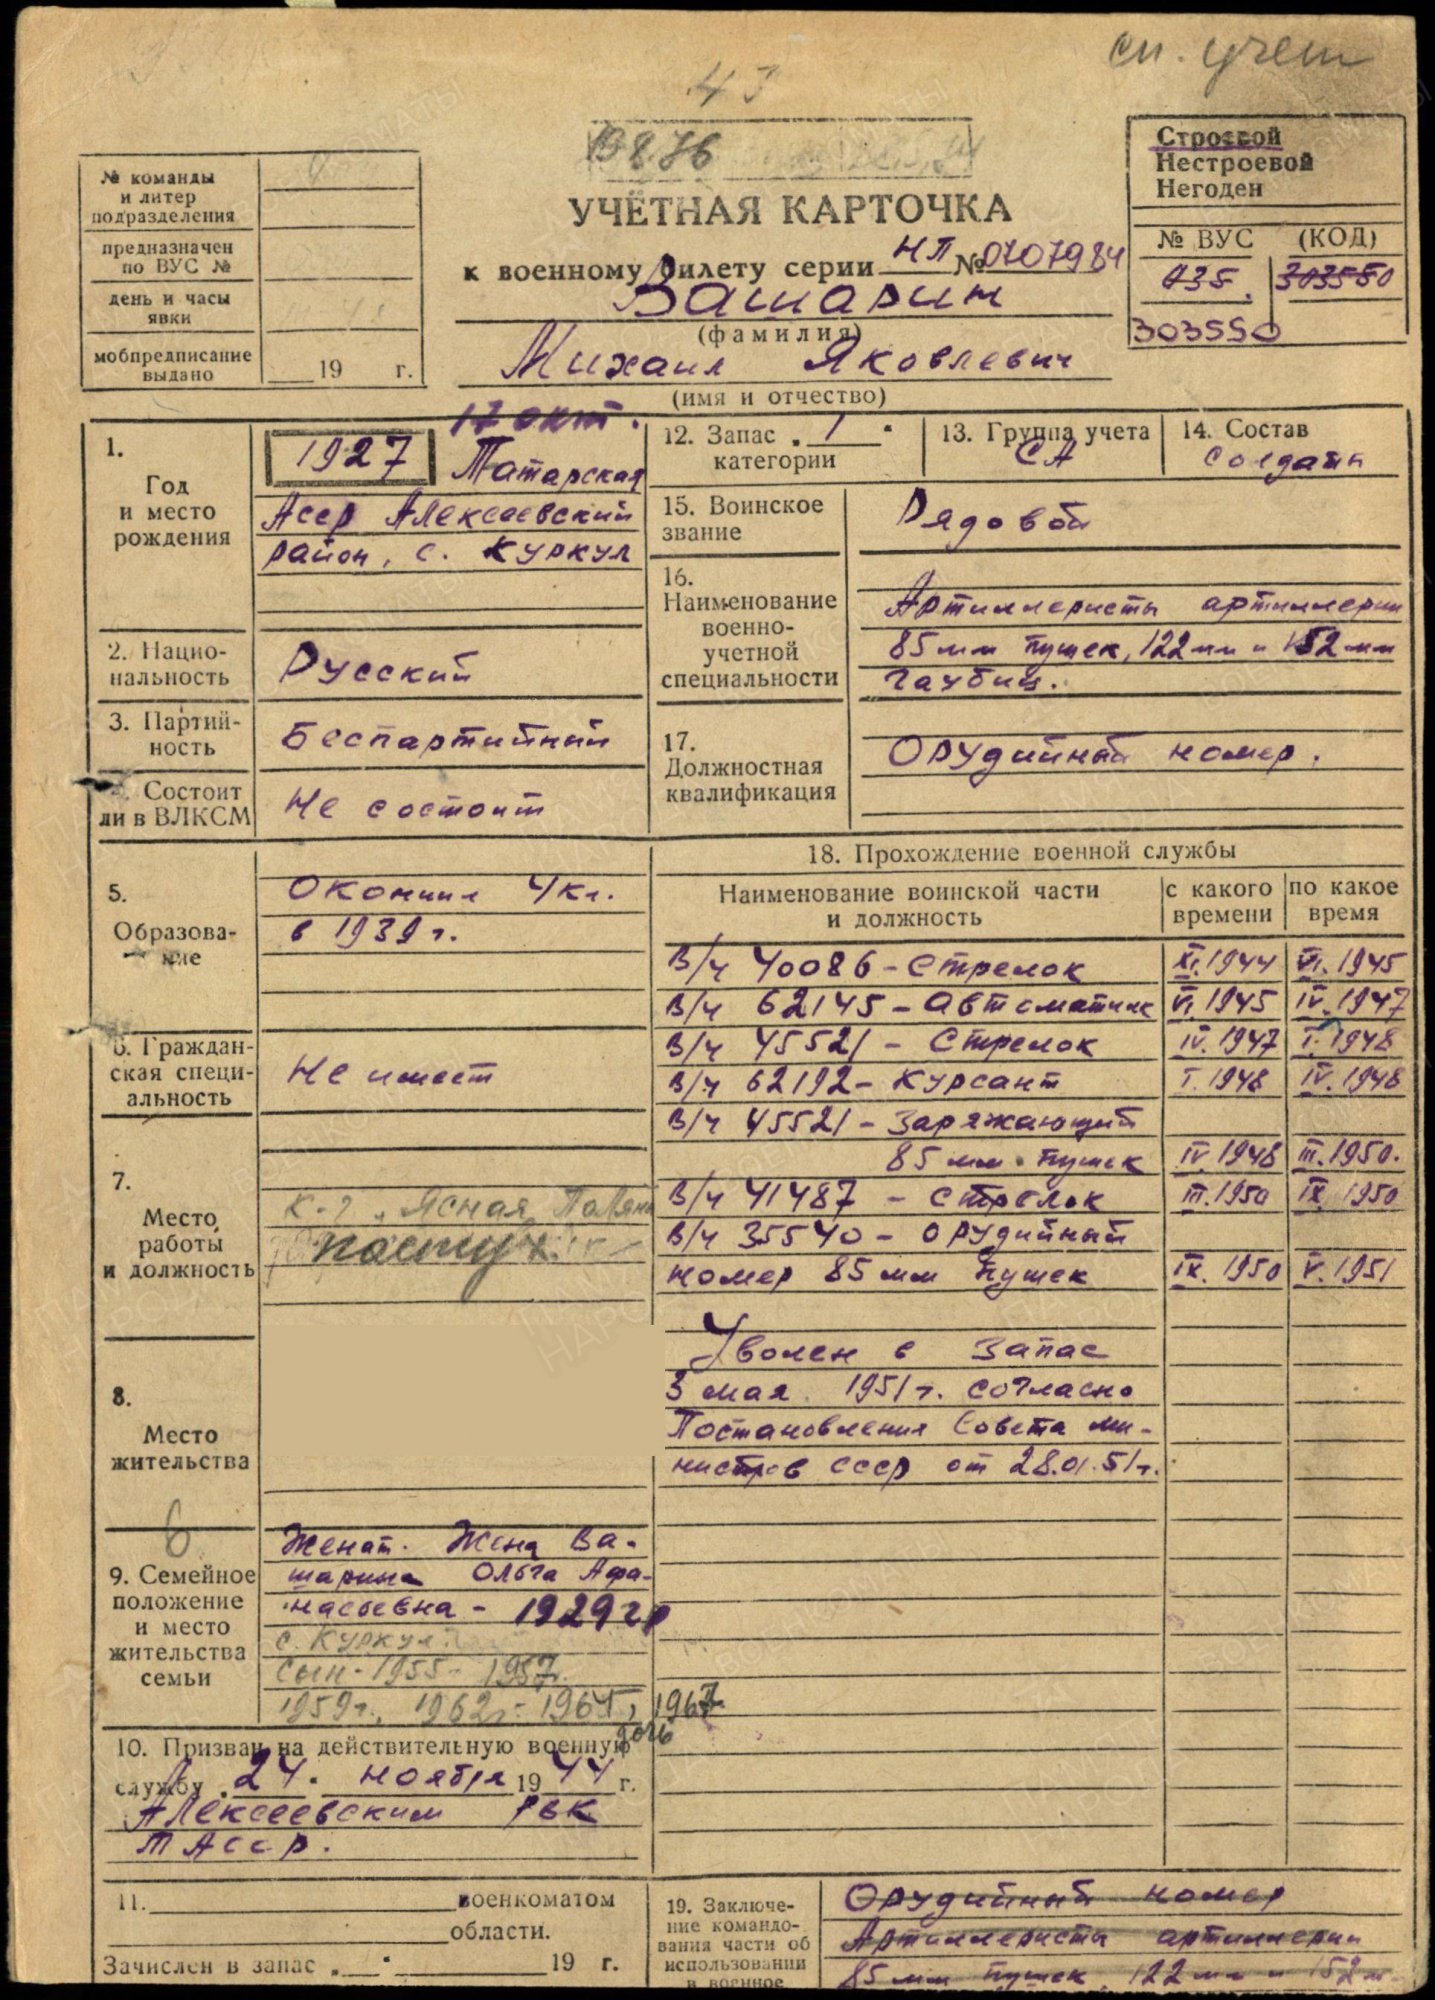 сп. учет
43
1976
№ команды
и литер
подразделения
предназначен
по ВУС №
день и часы
явки
мобпредписание
выдано
19 г.
УЧЁТНАЯ КАРТОЧКА
к военному билету серии НП № 0707984
Вашарин
(фамилия)
Михаил Яковлевич
(имя и отчество)
Строевой
Нестроевой
Негоден
№ ВУС (КОД)
035. 303550
303550
1.
Год
и место
рождения
17 окт.
1927 Татарская
Асср Алексеевский
район, с. Куркул
2. Нацио-
нальность
Русский
3. Партий-
ность
Беспартийный
Состоит
ли в ВЛКСМ
Не состоит
12. Запас 1
категории
13. Группа учета
СА
14. Состав
солдаты
15. Воинское
звание
Рядовой
16.
Наименование
военно-
учетной
специальности
Артиллеристы артиллерии
85 мм пушек, 122 мм и 152 мм
гаубиц.
17.
Должностная
квалификация
Орудийный номер.
5.
Образова-
ние
Окончил 4 кл.
в 1939 г.
6. Граждан-
ская специ-
альность
Не имеет
7.
Место
работы
и должность
к-з "Ясная Поляна
пастух
8.
Место
жительства
6
9. Семейное
положение
и место
жительства
семьи
Женат. Жена Ва-
шарина Ольга Афа-
насьевна - 1929 г.р
с. Куркул
сын - 1955 - 1957.
1959 г., 1962 г. - 1965, 1967
дочь
10. Призван на действительную военную
службу 24. ноября 1944 г.
Алексеевским РВК
ТАсср.
11. военкоматом
области.
Зачислен в запас 19 г.
18. Прохождение военной службы
Наименование воинской части
и должность
с какого
времени
по какое
время
В/ч 40086 - Стрелок XI.1944 VI.1945
В/ч 62145 - автоматчик VI.1945 IV.1947
В/ч 45521 - Стрелок IV.1947 I.1948
В/ч 62192 - Курсант I.1948 IV.1948
В/ч 45521 - Заряжающий
85 мм пушек IV.1948 III.1950.
В/ч 41487 - стрелок III.1950 IX.1950
В/ч 35540 - орудийный
номер 85 мм пушек IX.1950 V.1951
Уволен в запас
3 мая 1951 г. согласно
Постановления Совета ми-
нистров ссср от 28.01.51 г.
19. Заключе-
ние командо-
вания части об
использовании
в военное
Орудийный номер
Артиллеристы артиллерии
85 мм пушек, 122 мм и 152 м